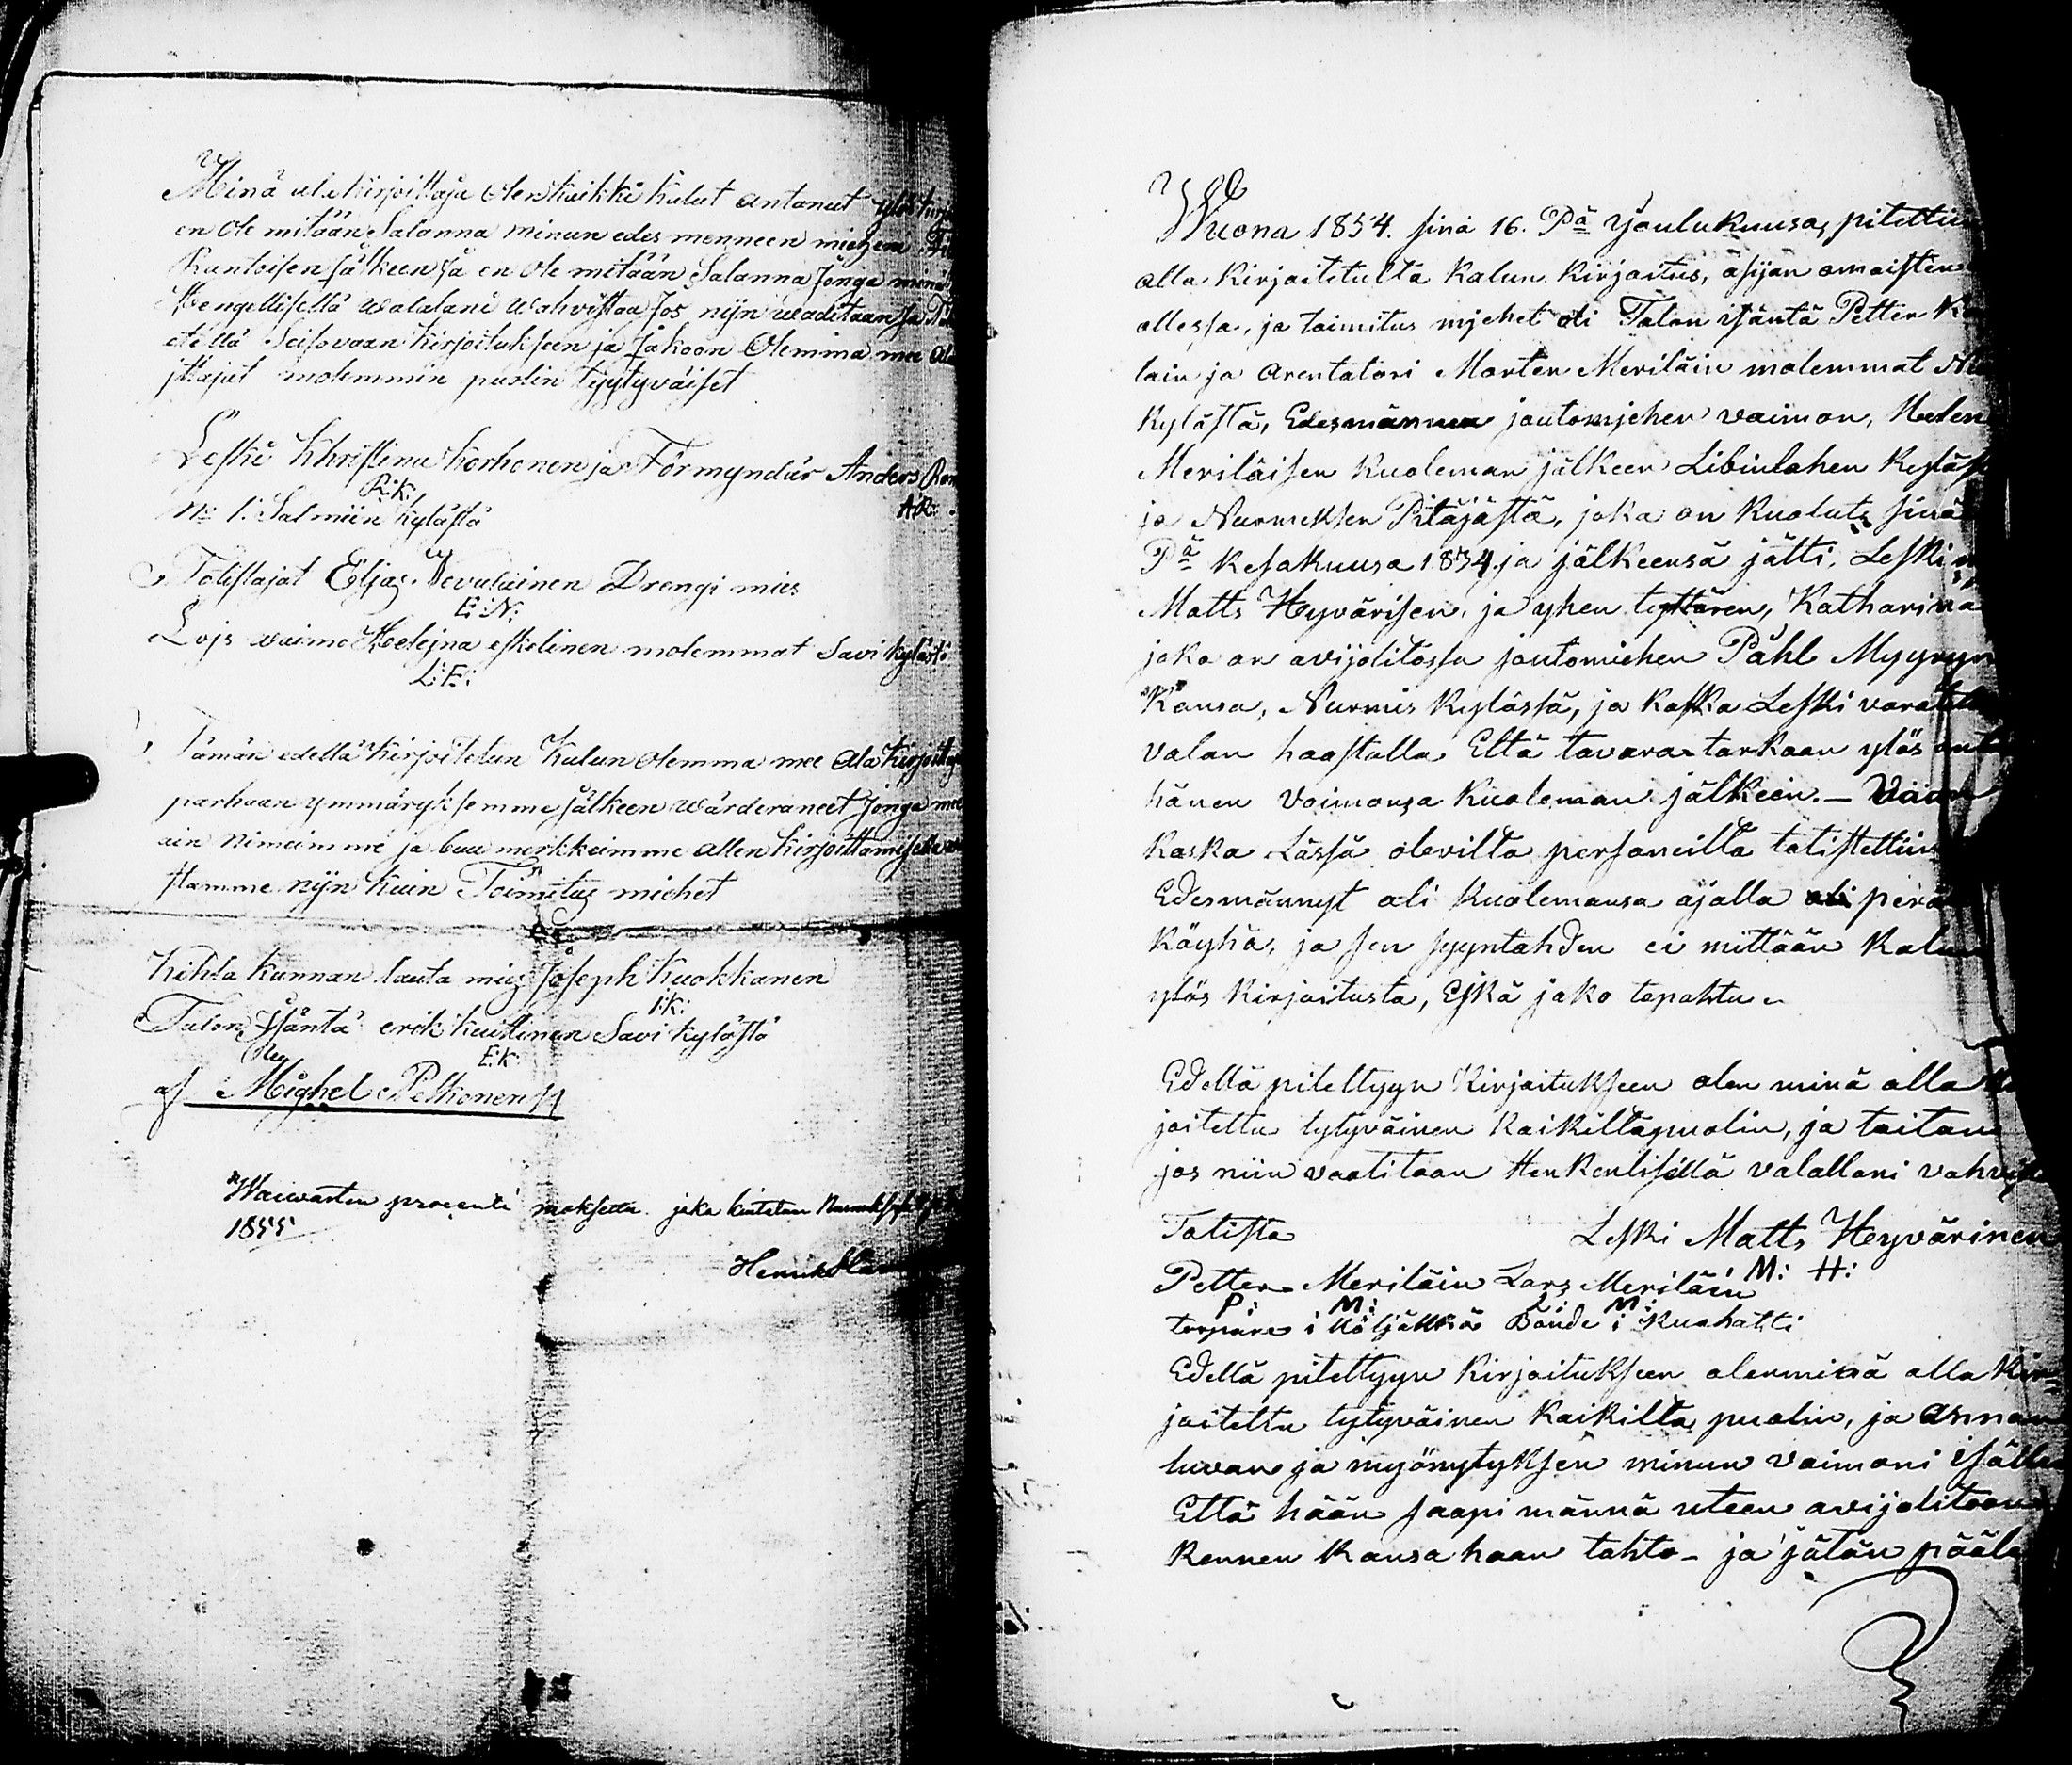 Minä ala kirjoittaja Olen kaikki kalut antanut ylös
en Ole mitään Salanna minun edes menneen miehen
Runtoisen jälkeen ja en Ole mitään Salanna Jonga minä
Hengellisellä walalani wahvistaa Jos nijn waaditaan ja
etellä Seisovaan kirjoitukseen ja Jakoon Olemma mee
jttajat molemmin puolin tyytyväiset
Leski Christina Korhonen ja Förmyndär Anders
R:K:
No 1. Salmiin kylästä A:R:
Totistajat Eljas Nevalainen Drengi mies
E:N:
Lojs vaimo Helejna eskelinen molemmat Savi kylästä
L:E:
Tämän edellä kirjoitetun Kalun olemma mee ala kirjoit
parhaan ymmäryksemme jälkeen wärderaneet Jonga mee
ain Nimeimme ja buu merkkeimme allen kirjoittamisella
stamme nijn kuin Toimitus miehet
Kihla kunnan lauta mies Joseph Kuokkanen
I:K:
Talon Isäntä erik keistinen Savi kylästä
E:K:
af Mighel Pelkonen
Waiwasten procenti maksettu joka kuitataan
1855
Henrik
Wuona 1854. sinä 16. Pä Joulukuusa, pitettiin
alla kirjoitetulta kalun kirjoitus, äsijän omaisten
ollessa, ja toimitus mjehet oli Talon isäntä Petter
lain ja arentatori Morten Meriläin molemmat
kylästä, Edesmännen joutomjehen vaimon, Helen
Meriläisen kuoleman jälkeen Libinlahen kyläst
ja Nurmeksen Pitäjästä, joka on kuolut sinä
Pä kesäkuusa 1854 ja jälkeensä jätti, Leski
Matts Heyvärisen, ja yhen tyttären, Katharina
joka on avijolitossa joutomiehen Påhl Myyryn
Kansa, Nurmis kylässä, ja koska Leski
valan haastolla Että tavara tarkaan ylös
hänen vaimonsa kuoleman jälkein. — Vaan
koska Lässä olevilta personeilta totistettiin
Edesmännyt oli kuolemansa ajalla perä
köyhä, ja sen syyntähden ei mittään kalun
ylös kirjoitusta, Eikä jako tapahtu
Edellä pitettyyn kirjoitukseen olen minä alla
joitettu tytyväinen kaikiltapuolin, ja taitan
jos niin vaatitaan Henkenlisellä valallani
Totista Leski Matts Heyvärinen
M: H:
Petter Meriläin Lars Meriläin
P: M: L: M:
torpare i Höljäkkä Bonde i Kuohatti
Edellä pitettyyn kirjoitukseen olen minä alla kir-
joitettu tytyväinen kaikilta puolin, ja annan
luvan ja myönytyksen minun vaimoni isälle
Että hään saapi männä uteen avijolitoon
kennen kansa haan tahto - ja jätän